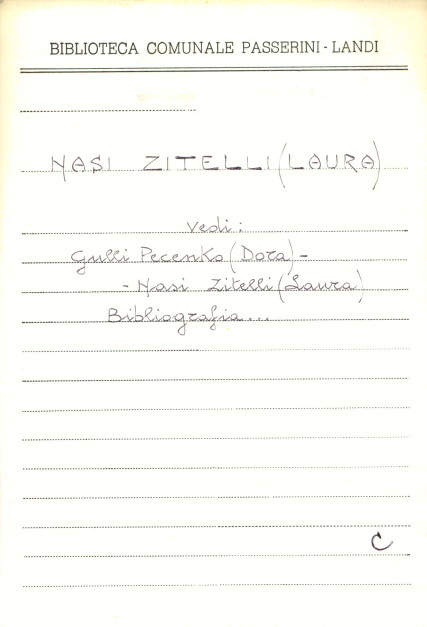 BIBLIOTECA COMUNALE PASSERINI - LANDI
NASI ZITELLI (LAURA)
Vedi:
Gulli Pecenko (Dora) -
- Nasi Zitelli (Laura)
Bibliografia...
C